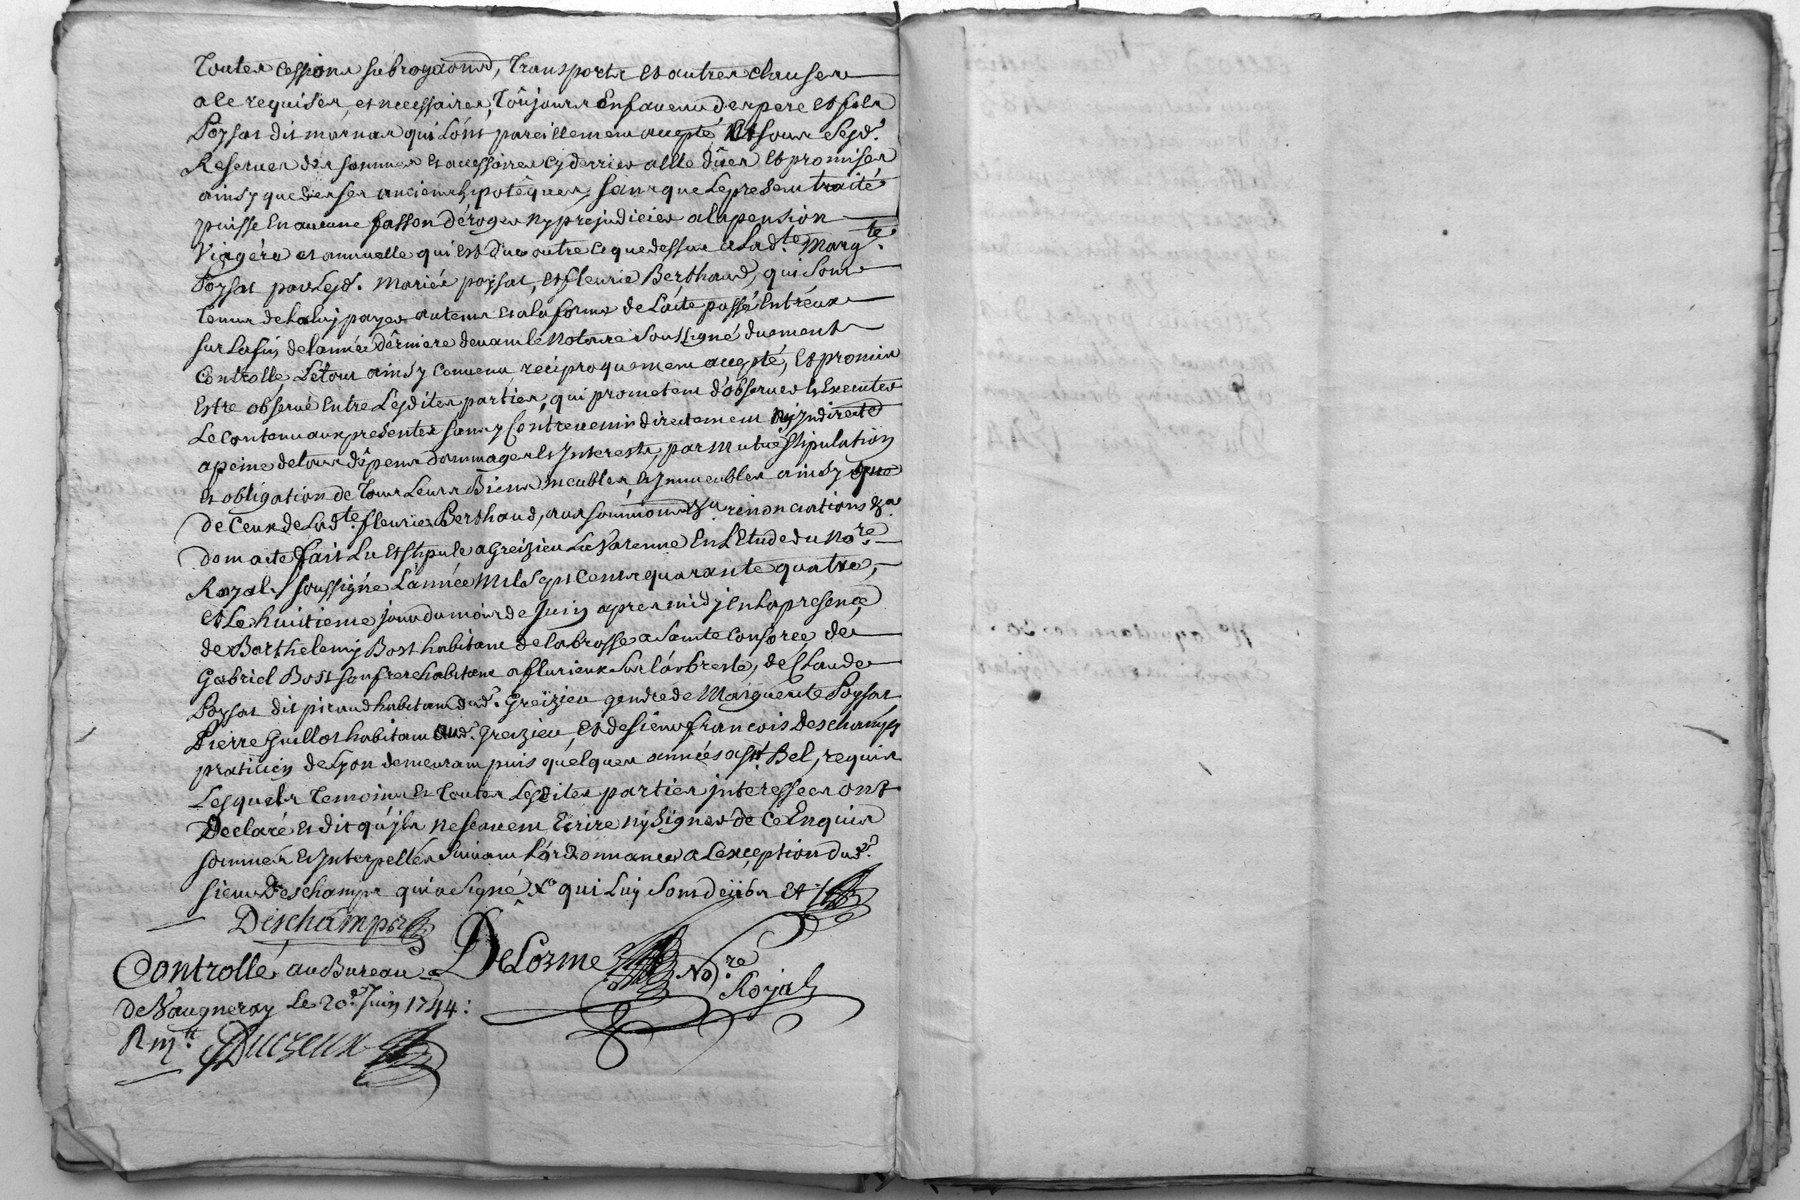 Toutes cessions subrogaōns, Transports et autres clauses
a ce requises, et necessaires, Toûjours En faveur des pere et fils
Poÿsat dit mornas qui L'ont pareillement accepté et sous
Reserves des sommes et accessoires cy derrier a elle dûes et promises
ainsy que de ses anciens hipotêques, sans que Le present traité
puisse En aucune fasson dêroger ny prejudicier a la pension
Viagére et annuelle qui Est düe outre ce que dessus a Lad.te Marg.te
Poÿsat par Lesd. mariés poÿsat, et fleurie Berthaud, qui sont
tenus de la luy payer au tems et a la forme de L'acte passé Entréux
sur La fin de L'année dêrniere devant le Notaire soussigné duement
Controllé, Le tout ainsy convenu, réciproquement accepté, et promis
Estre observé Entre Lesdites parties, qui prometent d'observer et Executer
Le contenu aux presentes sans y Contrevenir directement ny Indirectt
a peine de tous dêpens dommages et Interests, par mutuelle stipulation
et obligation de Tous Leurs Biens meubles, et Immeubles ainsy que
de Ceux de Lad.te fleurie Berthaud, aux soumissions &a renonciations &a
dont acte fait Lu et stipulé a Greizieu La Varenne En L'Etude du No.re
Royal soussigné L'année Mil sept Cents quarante quatre,
et Le huitieme jour du mois de Juin apres midy En la presence
de Barthelemy Bost habitant de la brosse a Sainte Consorce de
Gabriel Bost son frere habitant a fleurieux sur L'arbresle, de Claude
Poÿsat dit piraud habitant dud. Greizieu gendre de Marguerite Poÿsat
Pierre Guillot habitant aud. Greizieu, et de sieur françois Deschamps
praticien de Lyon demeurant puis quelques années a st Bel, requis
Lesquels Temoins et Toutes Lesdites parties interessées ont
Declaré et dit qu'ils ne sçavent Ecrire ny signer de ce Enquis
sommés et Interpellés suivant L'ordonnance a L'exception dud.
sieur Deschamps qui a signé
Deschamps
DeLorme No.re Royal
Controllé au Bureau
de Vaugneray Le 20.e Juin 1744:
Ducreux